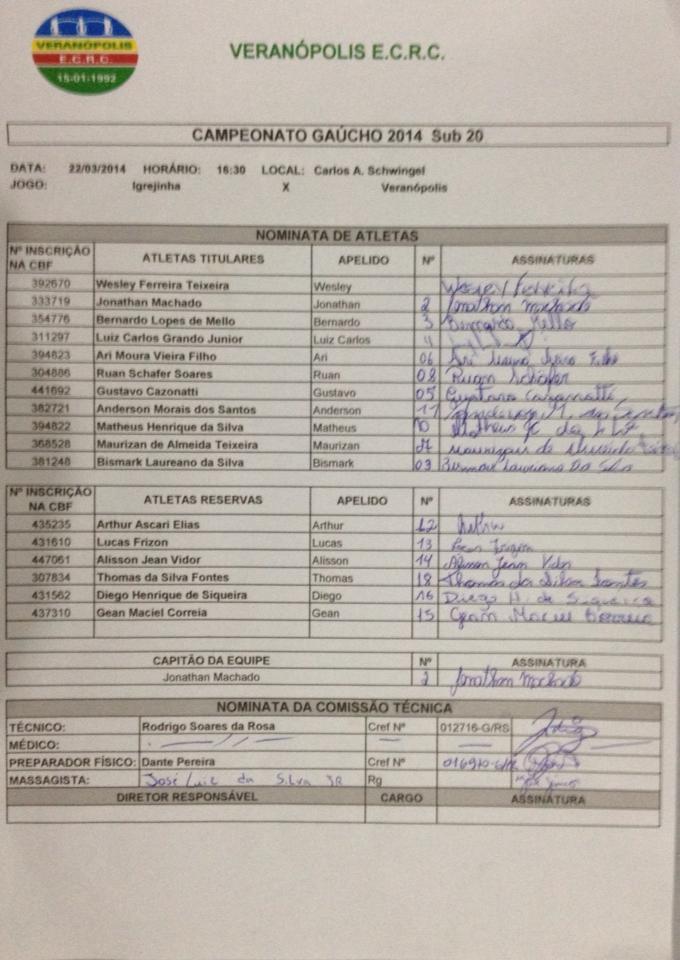 VERANÓPOLIS
E.C.R.C.
15-01-1992
VERANÓPOLIS E.C.R.C.
CAMPEONATO GAÚCHO 2014 Sub 20
DATA: 22/03/2014 HORÁRIO: 16:30 LOCAL: Carlos A. Schwingel
JOGO: Igrejinha X Veranópolis
NOMINATA DE ATLETAS
Nº INSCRIÇÃO NA CBF ATLETAS TITULARES APELIDO Nº ASSINATURAS
392670 Wesley Ferreira Teixeira Wesley Wesley Ferreira
333719 Jonathan Machado Jonathan 2 Jonathan Machado
354776 Bernardo Lopes de Mello Bernardo 3 Bernardo Mello
311297 Luiz Carlos Grando Junior Luiz Carlos 4
394823 Ari Moura Vieira Filho Ari 06 Ari Moura Vieira Filho
304886 Ruan Schafer Soares Ruan 08 Ruan Schafer
441692 Gustavo Cazonatti Gustavo 05 Gustavo Cazonatti
382721 Anderson Morais dos Santos Anderson 11 Anderson M. dos Santos
394822 Matheus Henrique da Silva Matheus 10 Matheus H da
368528 Maurizan de Almeida Teixeira Maurizan Maurizan de Almeida
381248 Bismark Laureano da Silva Bismark 09 Bismark Laureano Da Silva
Nº INSCRIÇÃO NA CBF ATLETAS RESERVAS APELIDO Nº ASSINATURAS
435235 Arthur Ascari Elias Arthur 12 Arthur
431610 Lucas Frizon Lucas 13 Lucas Frizon
447061 Alisson Jean Vidor Alisson 14 Alisson Jean Vidor
307834 Thomas da Silva Fontes Thomas 18 Thomas da Silva Fontes
431562 Diego Henrique de Siqueira Diego 16 Diego H. de Siqueira
437310 Gean Maciel Correia Gean 15 Gean Maciel Correia
CAPITÃO DA EQUIPE Nº ASSINATURA
Jonathan Machado 2 Jonathan Machado
NOMINATA DA COMISSÃO TÉCNICA
TÉCNICO: Rodrigo Soares da Rosa Cref Nº 012716-G/RS
MÉDICO:
PREPARADOR FÍSICO: Dante Pereira Cref Nº
MASSAGISTA: José Luiz da Silva JR Rg
DIRETOR RESPONSÁVEL CARGO ASSINATURA